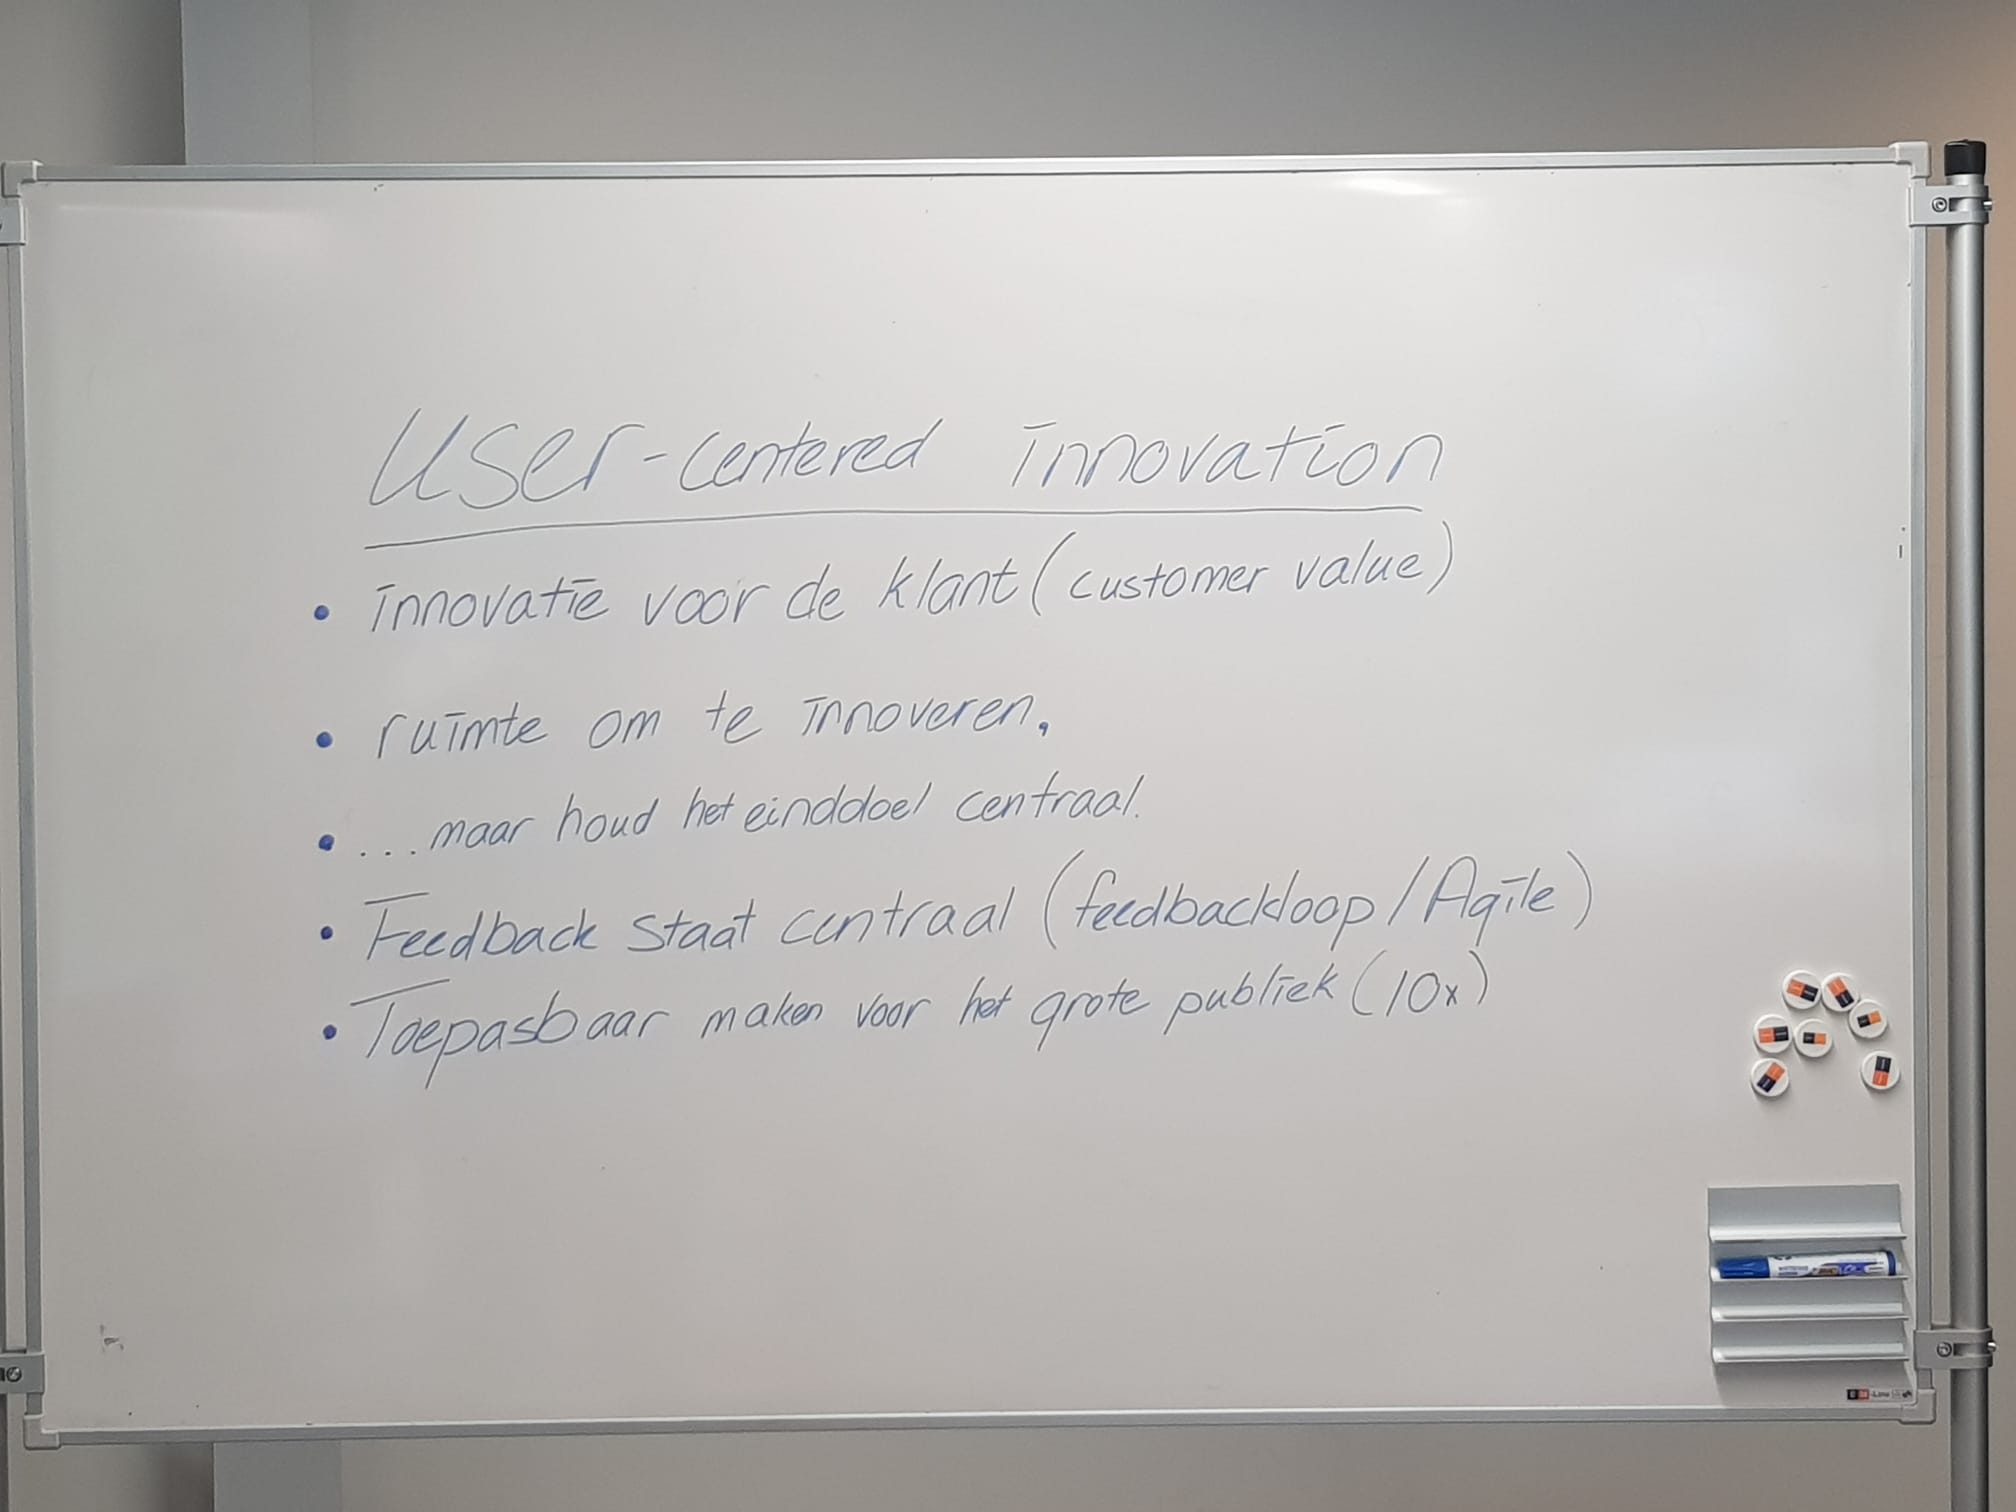 User-centered innovation
• innovatie voor de klant (customer value)
• ruimte om te innoveren,
• ...maar houd het einddoel centraal.
• Feedback staat centraal (feedbackloop/Agile)
• Toepasbaar maken voor het grote publiek (10x)